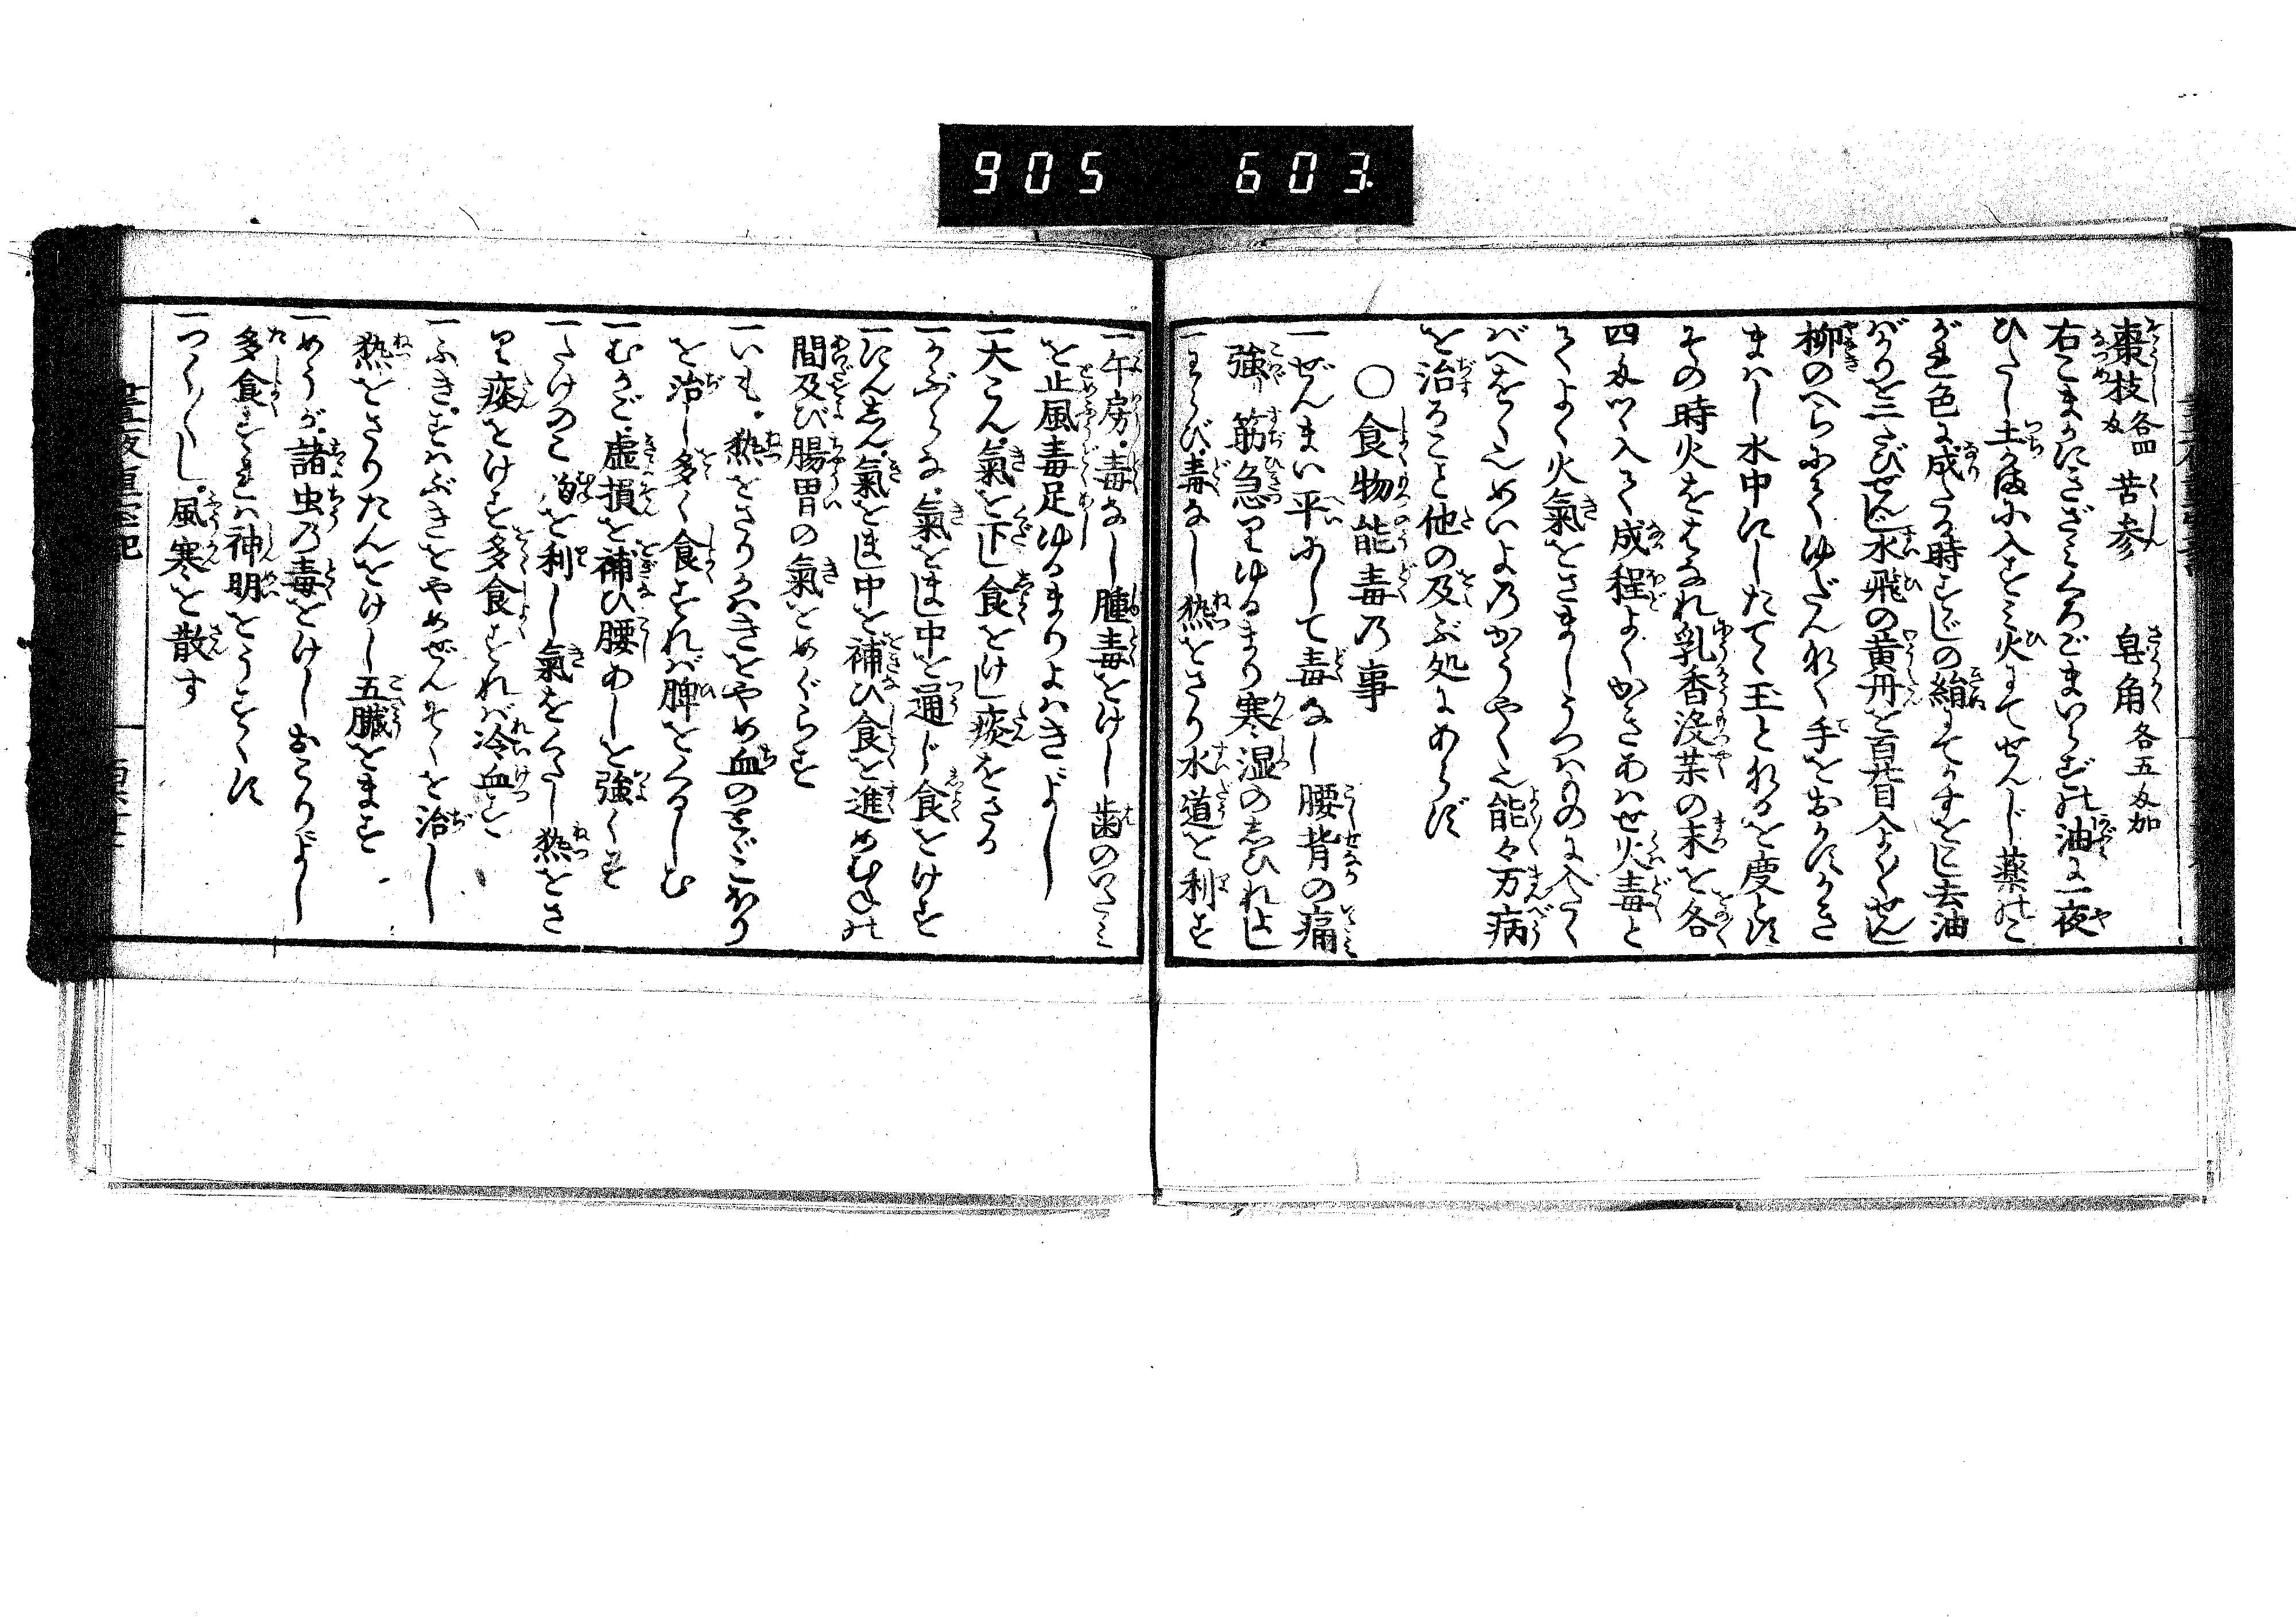 905 603
棗枝各四匁 苦参 皂角各五匁加
右こまかにきざミくろごまいらずの油に一夜
ひたし土なべに入すミ火にてせんじ薬のこ
がれ色に成たる時すゞしの絹にてかすをこし去油
ばかりを二たびせんじ水飛の黄丹を百廿目入よくせんじ
柳のへらにてゆだんなく手をおかずかき
まハし水中にしたてゝ玉となるを度とす
その時火をはなれ乳香没薬の末を各
四匁ツヽ入て成程よくかきあハせ火毒と
てよく火氣をさましうつハものに入たく
ばへをくべしめいよのかうやく也能々万病
を治すること他の及ぶ処にあらず
○食物能毒乃事
一ぜんまい平にして毒なし腰背の痛
強筋急りゆるまり寒湿の志ひれよし
一わらび毒なし熱をさり水道を利す
一午房毒なし腫毒をけし歯のいたミ
を止風毒足ゆるまりよハきによし
一大こん氣を下し食をけし痰をさる
一かぶらな氣をほし中を通じ食をけす
一にんじん氣をほし中を補ひ食を進めむねの
間及び腸胃の氣をめぐらす
一いも熱をさりかハきをやめ血のとゞこほり
を治し多く食すれバ脾をくるしむ
一むかご虚損を補ひ腰あしを強くす
一たけのこ 利し氣をくだし熱をさ
り痰をけす多食すれバ冷血す
一ふきすハぶきをやめぜんそくを治し
熱をさりたんをけし五臓をます
一めうが諸虫乃毒をけしおこりによし
多食すれバ神明をうすくす
一つく〳〵し風寒を散す